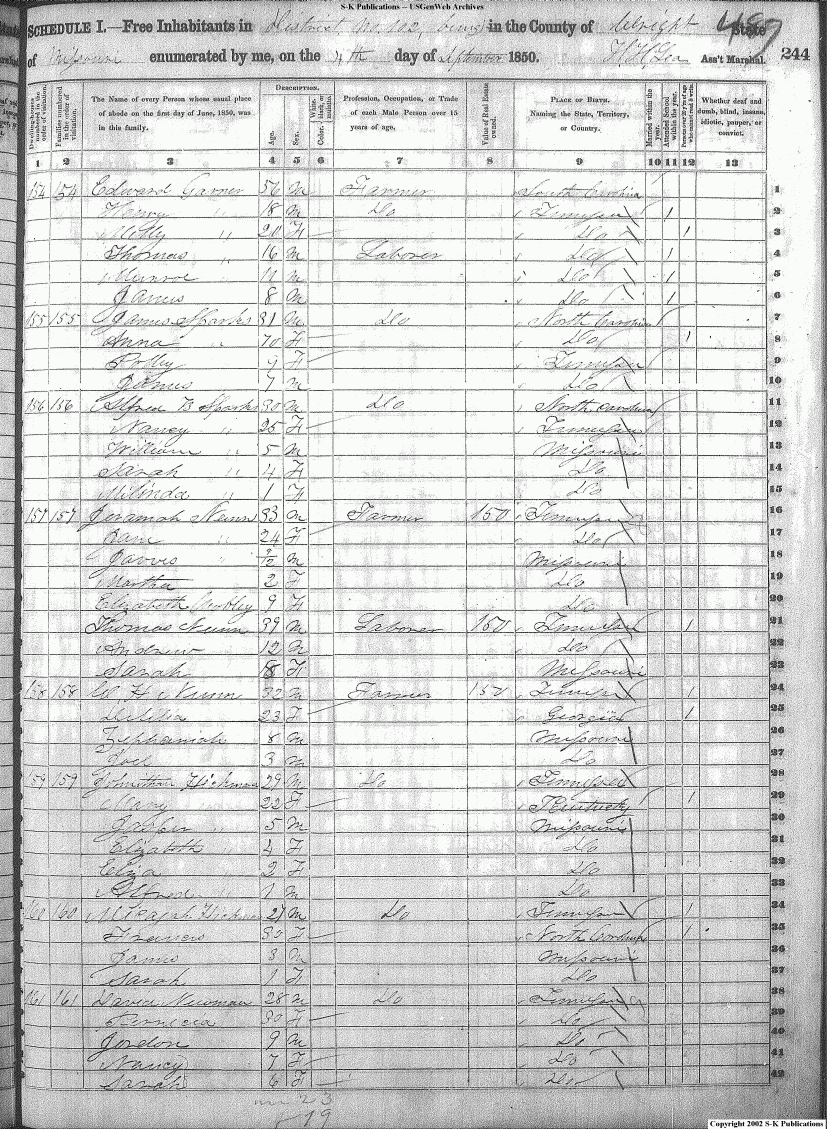 S-K Publications -- USGenWeb Archives
SCHEDULE I.—Free Inhabitants in District No. 102, being in the County of State
of Missouri enumerated by me, on the 4th day of September 1850. Ass't Marshal. 244
Dwelling-houses numbered in the order of visitation.
Families numbered in the order of visitation.
The Name of every Person whose usual place of abode on the first day of June, 1850, was in this family.
DESCRIPTION.
Age.
Sex.
White, Color, black, or mulatto.
Profession, Occupation, or Trade of each Male Person over 15 years of age.
Value of Real Estate owned.
PLACE OF BIRTH. Naming the State, Territory, or Country.
Married within the year.
Attended School within the year.
Persons over 20 y'rs of age who cannot read & write.
Whether deaf and dumb, blind, insane, idiotic, pauper, or convict.
1 2 3 4 5 6 7 8 9 10 11 12 13
154 154 Edward Garner 56 M Farmer South Carolina 1
Henry " 18 M Do Tennessee 1 2
" 20 F Do 1 3
Thomas " 16 M Laborer Do 1 4
Munroe 11 M Do 1 5
James 8 M Do 1 6
155 155 James Sparks 81 M Do North Carolina 7
Anna " 70 F Do 1 8
Polly 9 F Tennessee 9
James 7 M Do 10
156 156 Alfred B Sparks 30 M Do North Carolina 11
Nancy " 25 F Tennessee 12
William " 5 M Missouri 13
Sarah " 4 F Do 14
Milinda " 1 F Do 15
157 157 Jeramiah Nunn 33 M Farmer 150 Tennessee 16
Jane " 24 F Do 17
Jarvis " M Missouri 18
Martha 2 F Do 19
Elizabeth 9 F Do 20
Thomas Nunn 39 M Laborer 150 Tennessee 1 21
Andrew 12 M Do 22
Sarah 8 F Missouri 23
158 158 H Nunn 32 M Farmer 150 Tennessee 1 24
23 F Georgia 1 25
Zephaniah 8 M Missouri 26
Joel 3 M Do 27
159 159 Johnathan Hickman 29 M Do Tennessee 28
Mary 22 F Kentucky 1 29
Jasper " 5 M Missouri 30
Elizabeth " 4 F Do
Eliza 2 F Do 32
Alfred " 1 M Do 33
160 160 Micajah Hickman 27 M Do Tennessee 1 34
Frances 30 F North Carolina 1 35
James 3 M Missouri 36
Sarah 1 F Do 37
161 161 David Newman 28 M Do Tennessee 38
30 F Do 39
Jordon 9 M Do 40
Nancy 7 F Do 41
Sarah 6 F Do 42
m 23
19
Copyright 2002 S-K Publications